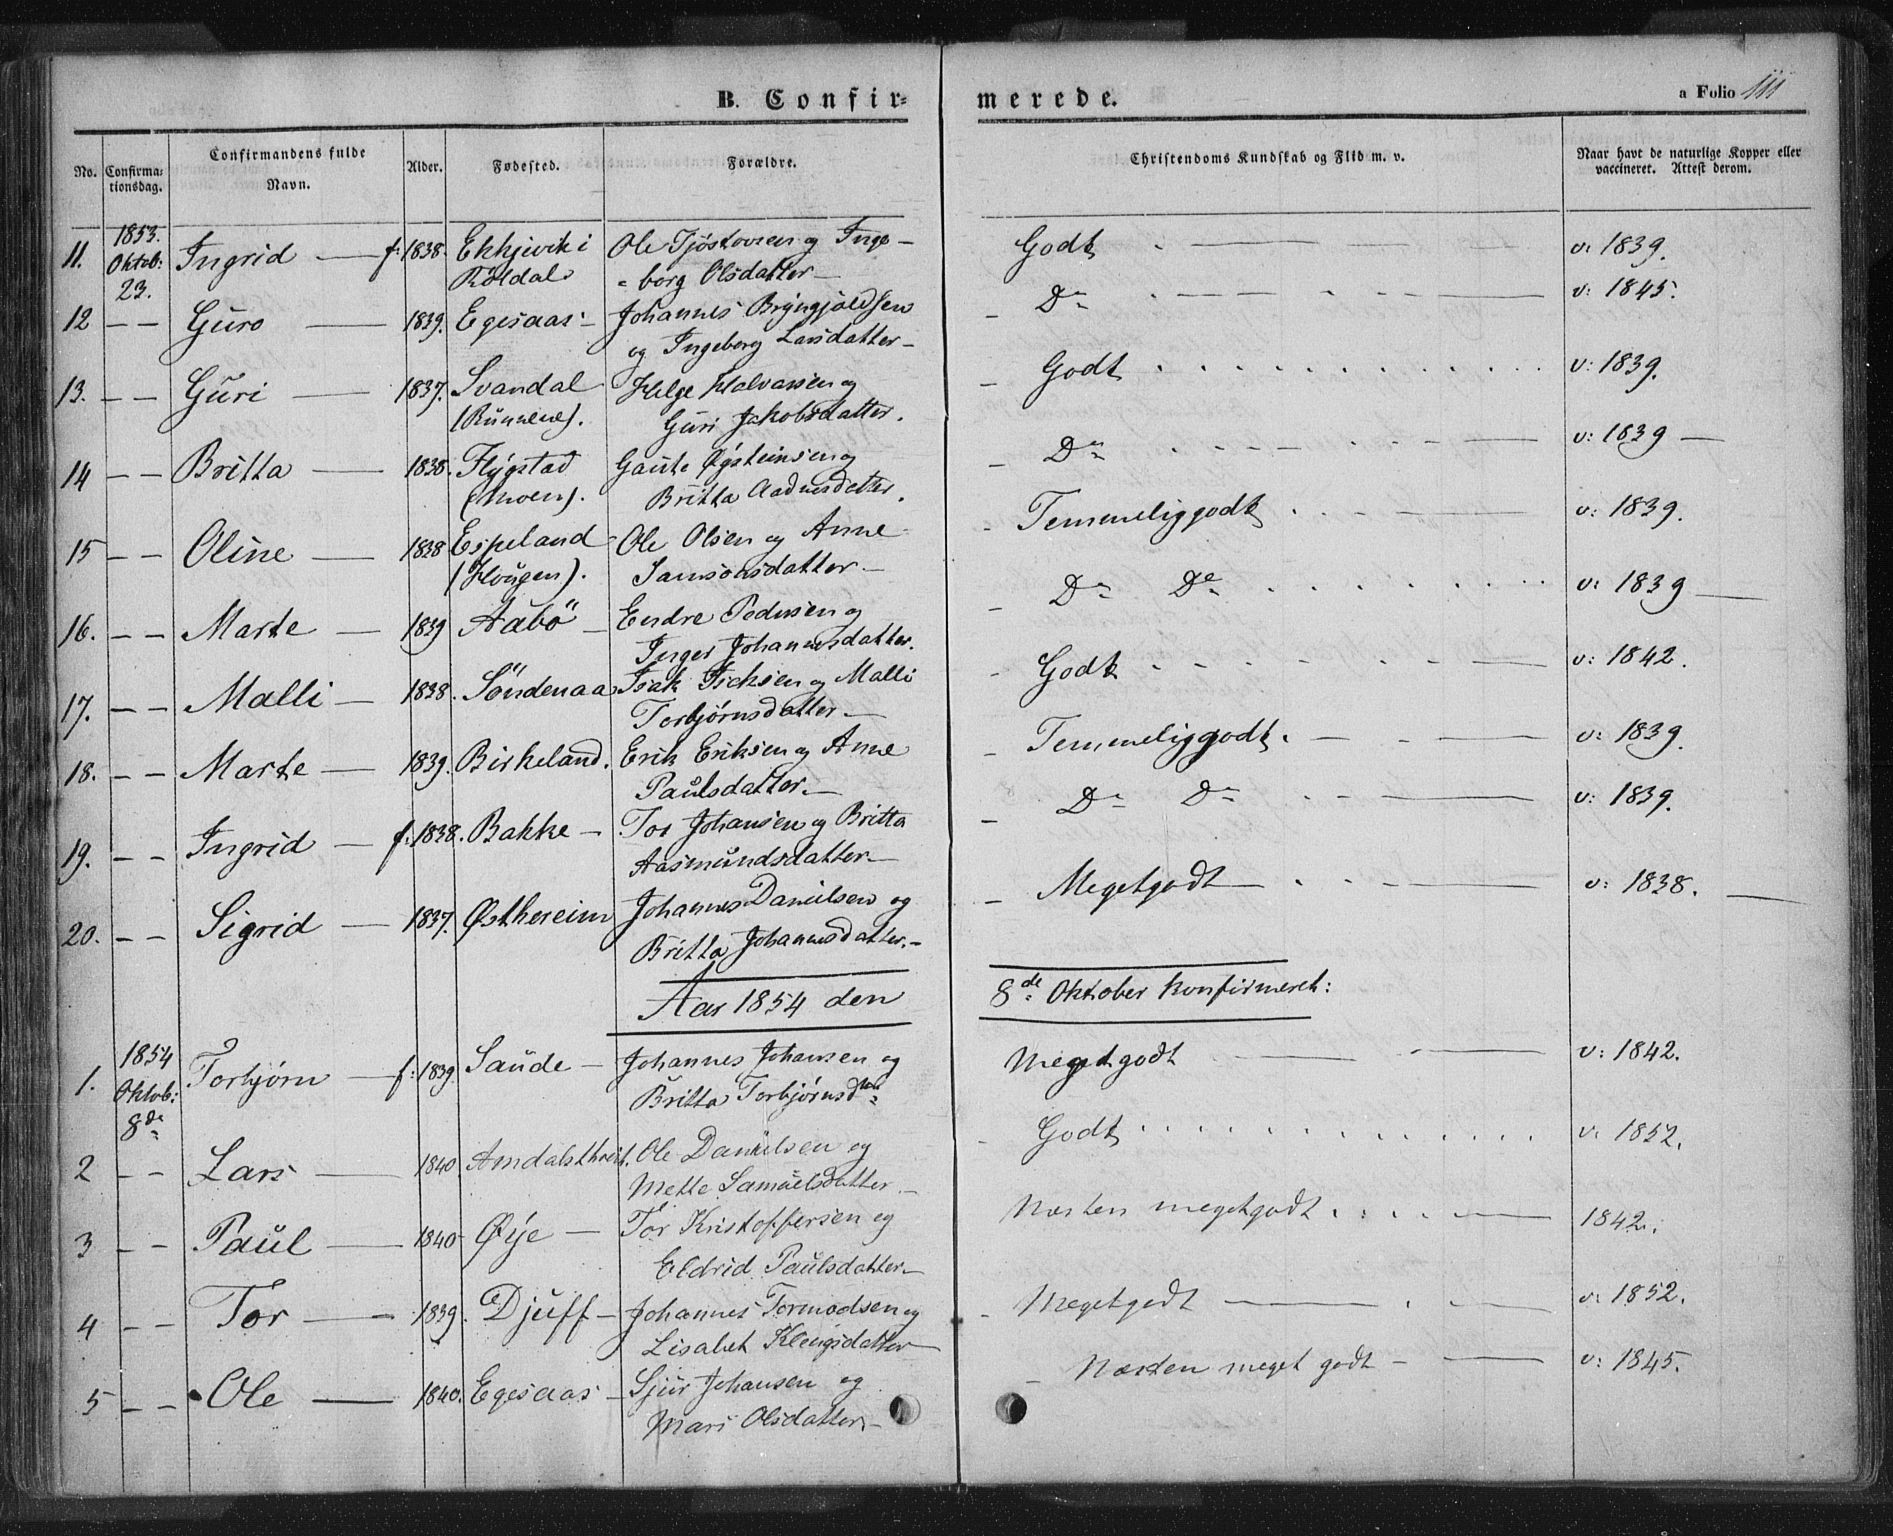 B. Confir=
merede.
a Folio 111
No.
Confirma=
tionsdag.
Confirmandens fulde
Navn.
Alder.
Fødested.
Forældre.
Christendoms Kundskab og Flid m. v.
Naar havt de naturlige Kopper eller
vaccineret. Attest derom.
11. 1853. Oktob: 23. Ingrid — f: 1838. Ekkjevik i Røldal Ole Tjøstovsen og Inge-
= borg Olsdatter — Godt v: 1839.
12 — — Guro — 1839. Egesaas — Johannes Brýngjoldsen
og Ingeborg Larsdatter — Do v: 1845.
13. — — Guri — 1837. Svandal Helge Halvarsen og
Guri Jakobsdatter. Godt v: 1839.
14 — — Britta — 1838. Flýgstad (Moen). Gaute Øýsteinsen og
Britta Aadnesdatter. Do v: 1839 —
15 — — Oline — 1838 Espeland (Hougen). Ole Olsen og Anne
Samsonsdatter — Temmelig godt v: 1839.
16. — — Marte — 1839 Aabö — Endre Pedersen og
Inger Johannesdatter. Do Do v: 1839 —
17. — — Malli — 1838. Söndenaa Isak Isaksen og Malli
Torbjørnsdatter — Godt v: 1842.
18. — — Marte — 1839. Birkeland. Erik Eriksen og Anne
Paulsdatter — Temmelig godt. v: 1839.
19. — — Ingrid — f: 1838. Bakke — Tor Johansen og Britta
Aasmundsdatter — Do Do v: 1839.
20. — — Sigrid — 1837. Østhereim Johannes Danielsen og
Britta Johannesdatter. — Meget godt v: 1838. —
Aar 1854 den 8de Oktober konfirmeret:
1. 1854 Oktob: 8de Torbjørn — f: 1839 Saude — Johannes Johansen og
Britta Torbjørnsdtr Meget godt v: 1842.
2 — — Lars — 1840 Amdalsthveit. Ole Danielsen og
Mette Samuelsdatter — Godt v: 1852.
3 — — Paul — 1840 Øýe — Tor Kristoffersen og
Eldrid Paulsdatter — Næsten meget godt 1842.
4 — — Tor — 1839. Djuff — Johannes Tormodsen og
Lisabet Klengsdatter — Meget godt v: 1852.
5 — — Ole — 1840. Egesaas — Sjur Johansen og
Mari Olsdatter — Næsten meget godt — v: 1845.